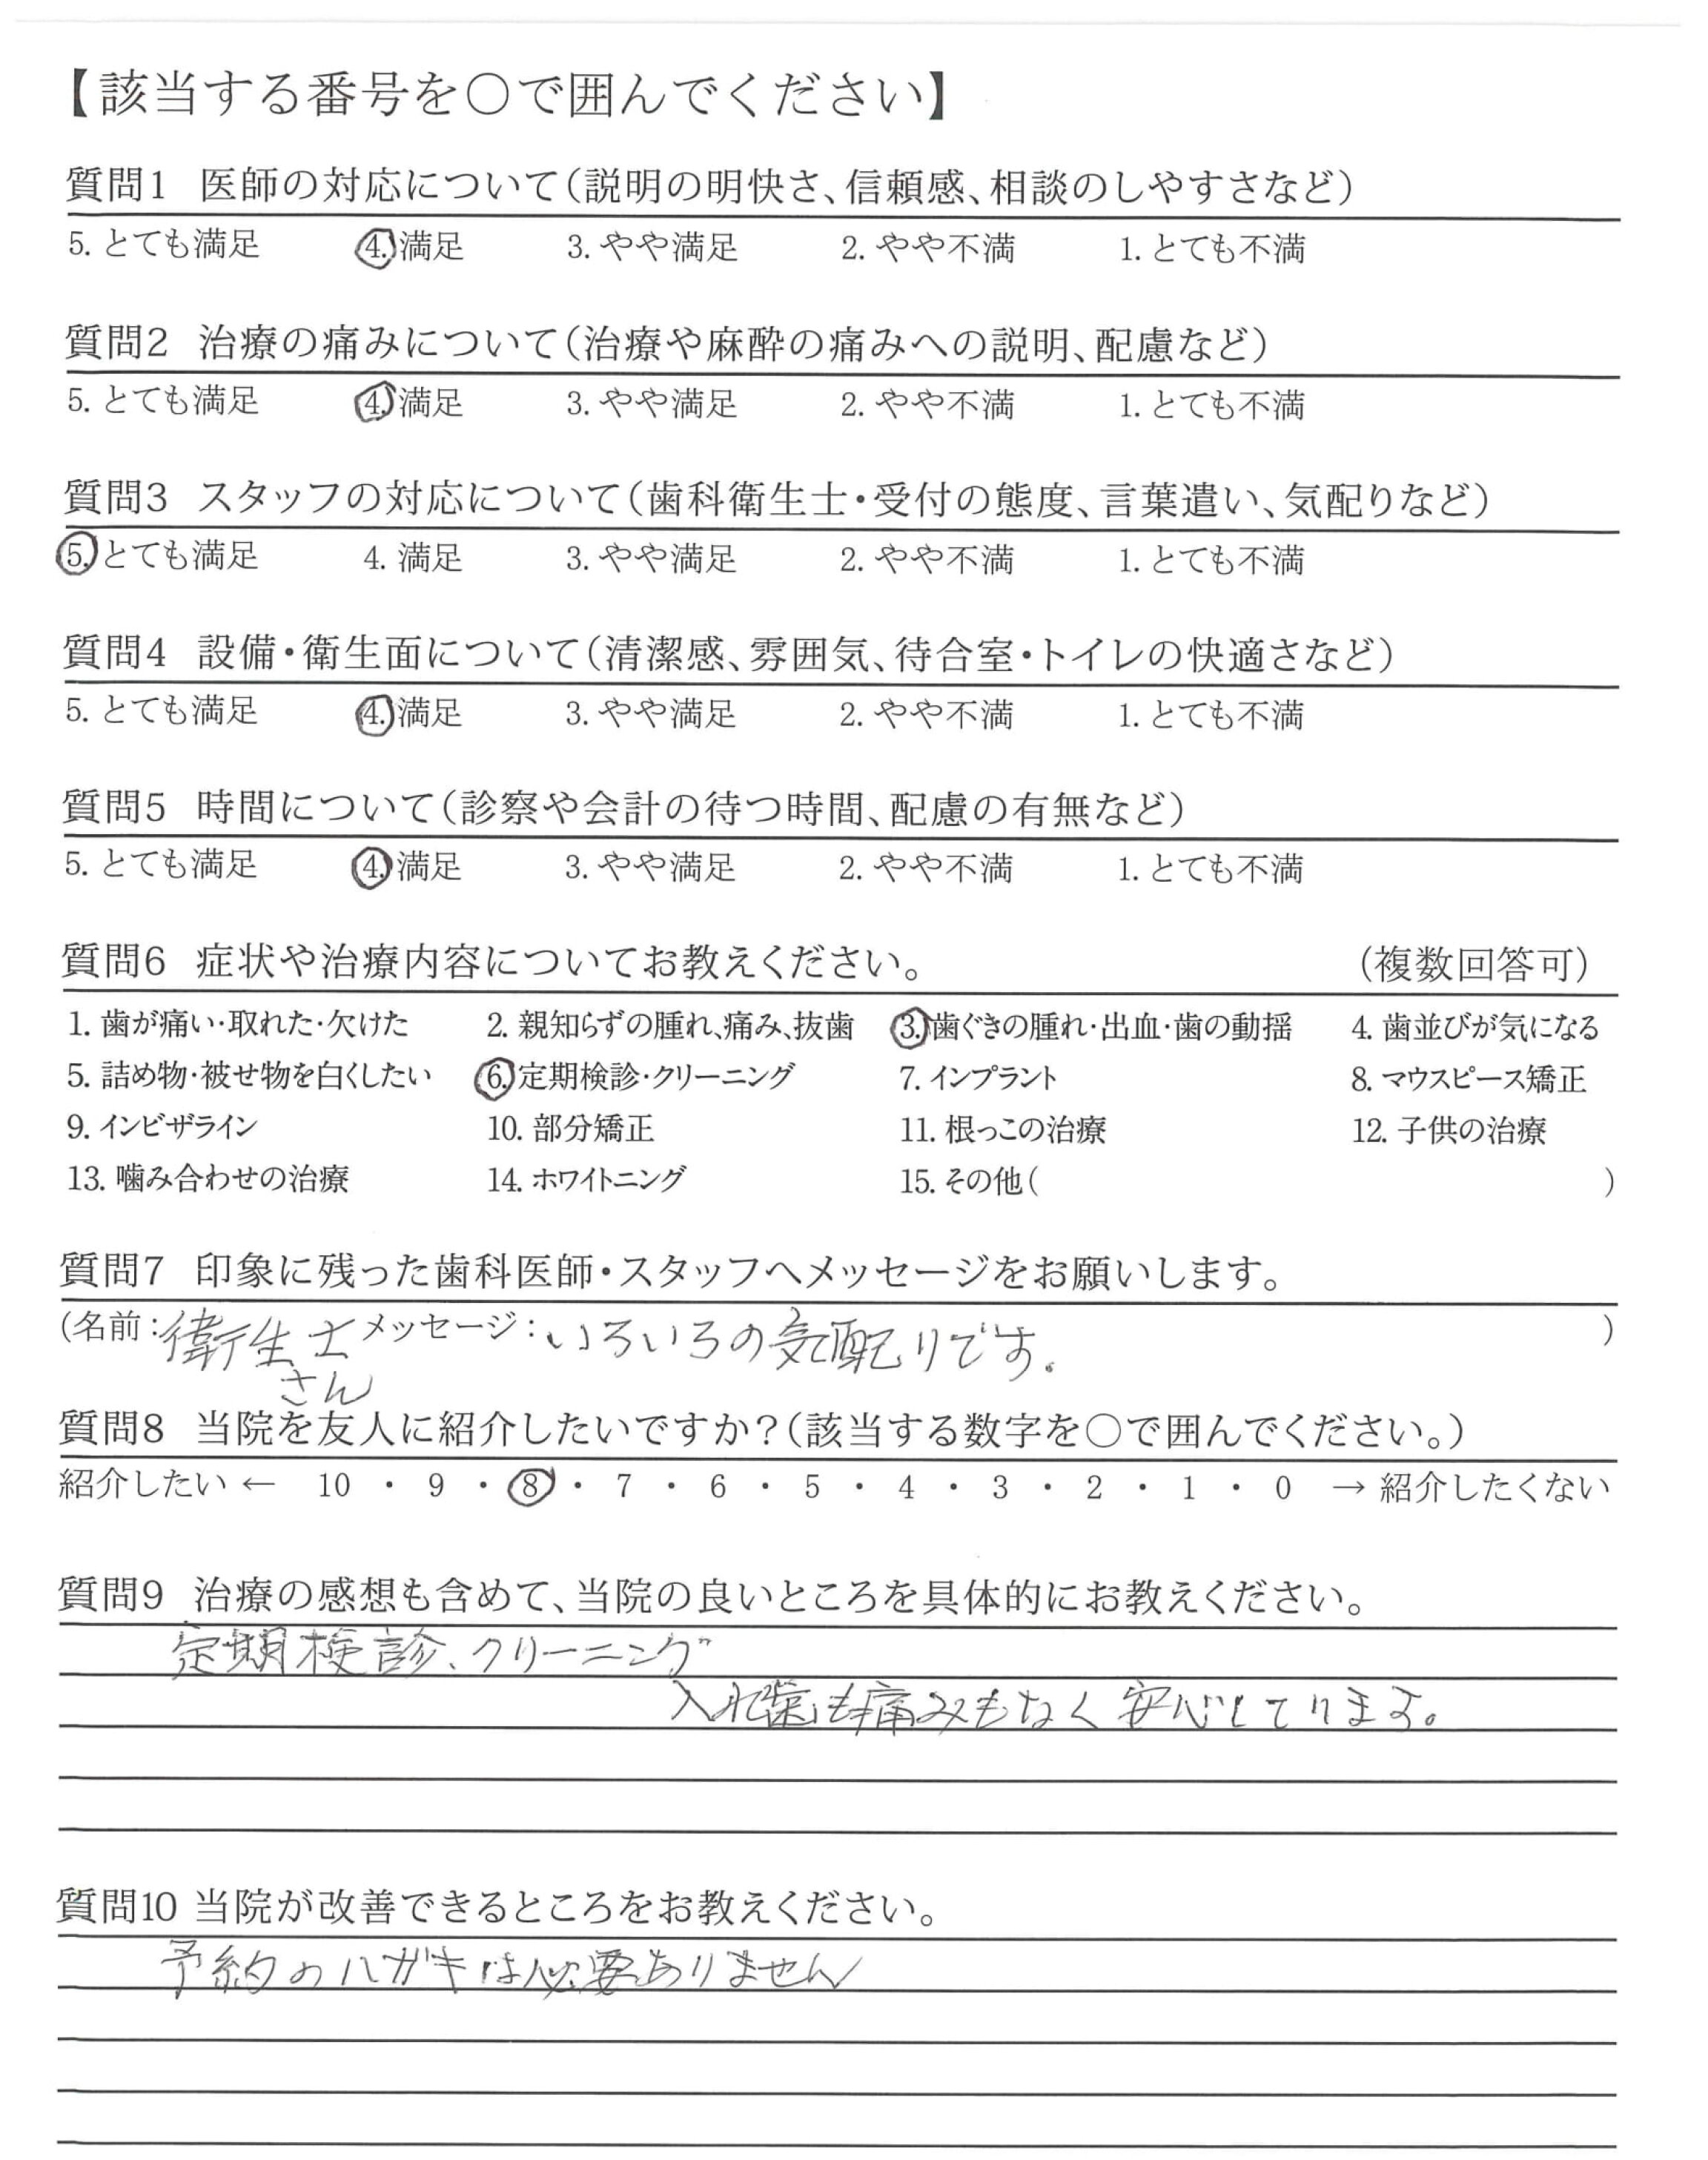 【該当する番号を〇で囲んでください】
質問1 医師の対応について(説明の明快さ、信頼感、相談のしやすさなど)
5. とても満足 4. 満足 3. やや満足 2. やや不満 1. とても不満
質問2 治療の痛みについて(治療や麻酔の痛みへの説明、配慮など)
5. とても満足 4. 満足 3. やや満足 2. やや不満 1. とても不満
質問3 スタッフの対応について(歯科衛生士・受付の態度、言葉遣い、気配りなど)
5. とても満足 4. 満足 3. やや満足 2. やや不満 1. とても不満
質問4 設備・衛生面について(清潔感、雰囲気、待合室・トイレの快適さなど)
5. とても満足 4. 満足 3. やや満足 2. やや不満 1. とても不満
質問5 時間について(診察や会計の待つ時間、配慮の有無など)
5. とても満足 4. 満足 3. やや満足 2. やや不満 1. とても不満
質問6 症状や治療内容についてお教えください。 (複数回答可)
1. 歯が痛い・取れた・欠けた 2. 親知らずの腫れ、痛み、抜歯 3. 歯ぐきの腫れ・出血・歯の動揺 4. 歯並びが気になる
5. 詰め物・被せ物を白くしたい 6. 定期検診・クリーニング 7. インプラント 8. マウスピース矯正
9. インビザライン 10. 部分矯正 11. 根っこの治療 12. 子供の治療
13. 噛み合わせの治療 14. ホワイトニング 15. その他( )
質問7 印象に残った歯科医師・スタッフへメッセージをお願いします。
(名前:衛生士 メッセージ:いろいろの気配りです。 )
さん
質問8 当院を友人に紹介したいですか?(該当する数字を〇で囲んでください。)
紹介したい ← 10 ・ 9 ・ 8 ・ 7 ・ 6 ・ 5 ・ 4 ・ 3 ・ 2 ・ 1 ・ 0 → 紹介したくない
質問9 治療の感想も含めて、当院の良いところを具体的にお教えください。
定期検診、クリーニング
入れ歯も痛みもなく安心してります。
質問10 当院が改善できるところをお教えください。
予約のハガキは必要ありません